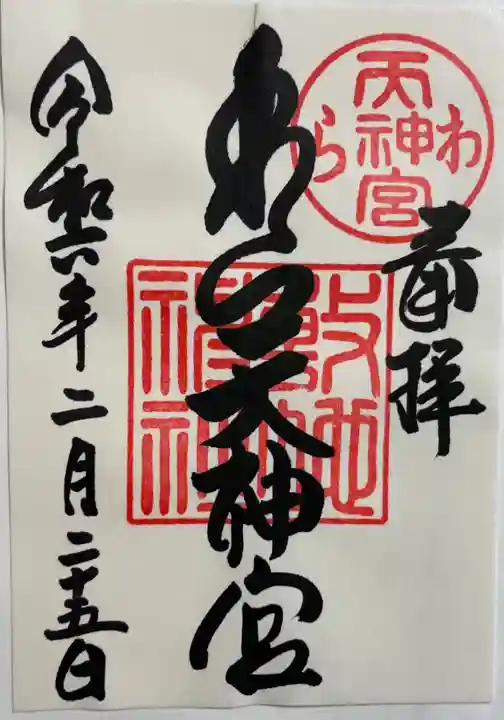 奉拝
わら
天神宮
わら天神宮
敷地神社
令和六年二月二十五日